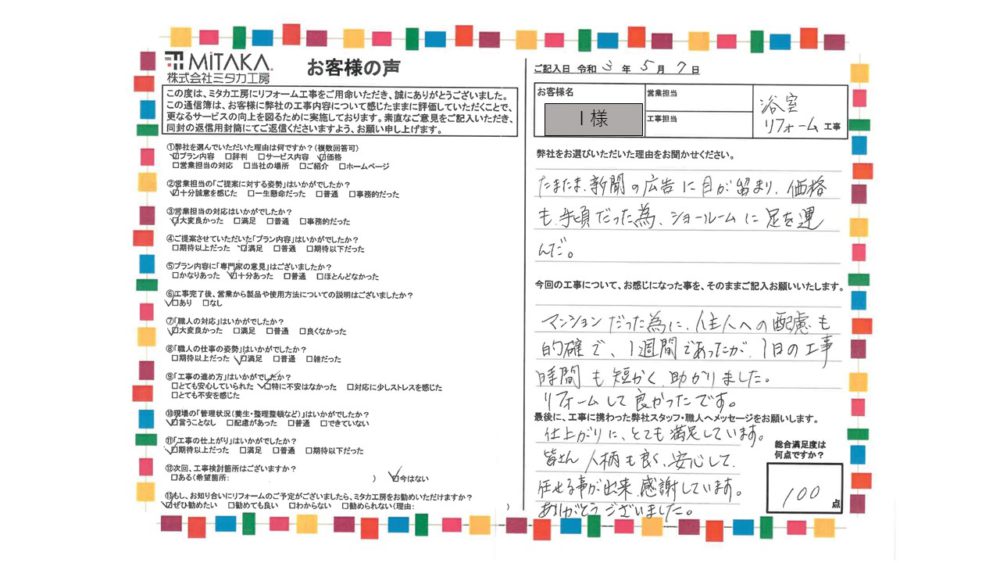 MiTAKA
株式会社ミタカ工房
お客様の声
この度は、ミタカ工房にリフォーム工事をご用命いただき、誠にありがとうございました。
この通信簿は、お客様に弊社の工事内容について感じたままに評価していただくことで、
更なるサービスの向上を図るために実施しております。素直なご意見をご記入いただき、
同封の返信用封筒にてご返信くださいますよう、お願い申し上げます。
①弊社を選んでいただいた理由は何ですか?(複数回答可)
☑プラン内容 □評判 □サービス内容 ☑価格
□営業担当の対応 □当社の場所 □ご紹介 □ホームページ
②営業担当の「ご提案に対する姿勢」はいかがでしたか?
☑十分誠意を感じた □一生懸命だった □普通 □事務的だった
③営業担当の対応はいかがでしたか?
☑大変良かった □満足 □普通 □事務的だった
④ご提案させていただいた「プラン内容」はいかがでしたか?
□期待以上だった ☑満足 □普通 □期待以下だった
⑤プラン内容に「専門家の意見」はございましたか?
□かなりあった ☑十分あった □普通 □ほとんどなかった
⑥工事完了後、営業から製品や使用方法についての説明はございましたか?
☑あり □なし
⑦「職人の対応」はいかがでしたか?
☑大変良かった □満足 □普通 □良くなかった
⑧「職人の仕事の姿勢」はいかがでしたか?
□期待以上だった ☑満足 □普通 □雑だった
⑨「工事の進め方」はいかがでしたか?
□とても安心していられた ☑特に不安はなかった □対応に少しストレスを感じた
□とても不安を感じた
⑩現場の「管理状況(養生・整理整頓など)」はいかがでしたか?
☑言うことなし □配慮があった □普通 □できていない
⑪「工事の仕上がり」はいかがでしたか?
☑期待以上だった □満足 □普通 □期待以下だった
⑫次回、工事検討箇所はございますか?
□ある(希望箇所: ) ☑今はない
⑬もし、お知り合いにリフォームのご予定がございましたら、ミタカ工房をお勧めいただけますか?
☑ぜひ勧めたい □勧めても良い □わからない □勧められない(理由: )
ご記入日 令和 3 年 5 月 7 日
お客様名
I 様
営業担当
工事担当
浴室
リフォーム 工事
弊社をお選びいただいた理由をお聞かせください。
たまたま、新聞の広告に目が留まり、価格
も手頃だった為、ショールームに足を運
んだ。
今回の工事について、お感じになった事を、そのままご記入お願いいたします。
マンションだった為に、住人への配慮も
的確で、1週間であったが、1日の工事
時間も短かく、助かりました。
リフォームして良かったです。
最後に、工事に携わった弊社スタッフ・職人へメッセージをお願いします。
仕上がりに、とても満足しています。
皆さん人柄も良く、安心して
任せる事が出来、感謝しています。
ありがとうございました。
総合満足度は
何点ですか?
100 点